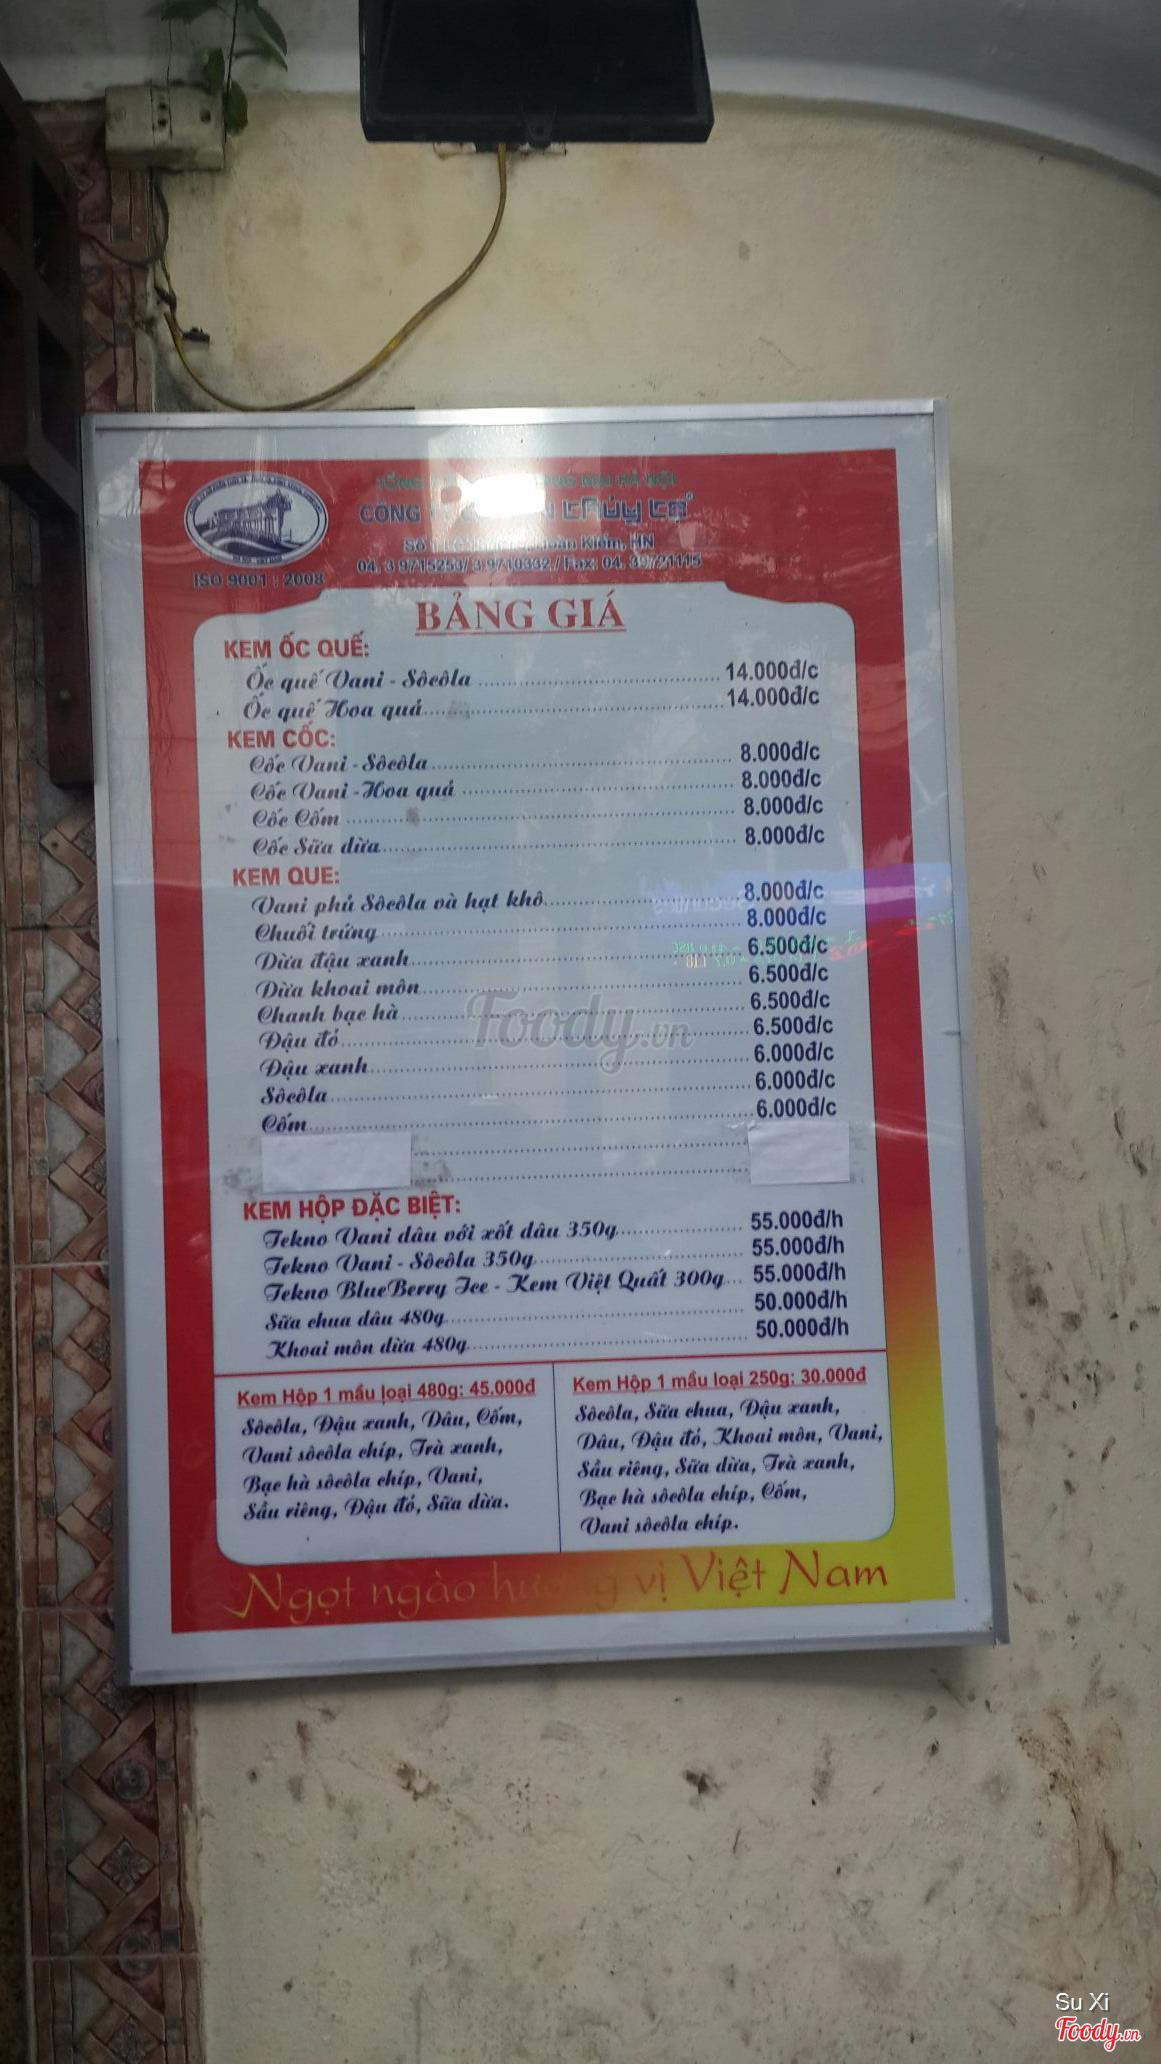 MẠI HÀ NỘI
CÔNG THỦY TẠ
Hoàn Kiếm, HN
04. 3 9715253/ 3 9710332 / Fax: 04. 39721115
ISO 9001 : 2008
BẢNG GIÁ
KEM ỐC QUẾ:
Ốc quế Vani - Sôcôla 14.000đ/c
Ốc quế Hoa quả 14.000đ/c
KEM CỐC:
Cốc Vani - Sôcôla 8.000đ/c
Cốc Vani - Hoa quả 8.000đ/c
Cốc Cốm 8.000đ/c
Cốc Sữa dừa 8.000đ/c
KEM QUE:
Vani phủ Sôcôla và hạt khô 8.000đ/c
Chuối trứng 8.000đ/c
Dừa đậu xanh 6.500đ/c
Dừa khoai môn 6.500đ/c
Chanh bạc hà 6.500đ/c
Đậu đỏ 6.500đ/c
Đậu xanh 6.000đ/c
Sôcôla 6.000đ/c
Cốm 6.000đ/c
KEM HỘP ĐẶC BIỆT:
Tekno Vani dâu với xốt dâu 350g 55.000đ/h
Tekno Vani - Sôcôla 350g 55.000đ/h
Tekno BlueBerry Ice - Kem Việt Quất 300g 55.000đ/h
Sữa chua dâu 480g 50.000đ/h
Khoai môn dừa 480g 50.000đ/h
Kem Hộp 1 mầu loại 480g: 45.000đ
Sôcôla, Đậu xanh, Dâu, Cốm,
Vani sôcôla chíp, Trà xanh,
Bạc hà sôcôla chíp, Vani,
Sầu riêng, Đậu đỏ, Sữa dừa.
Kem Hộp 1 mầu loại 250g: 30.000đ
Sôcôla, Sữa chua, Đậu xanh,
Dâu, Đậu đỏ, Khoai môn, Vani,
Sầu riêng, Sữa dừa, Trà xanh,
Bạc hà sôcôla chíp, Cốm,
Vani sôcôla chíp.
Ngọt ngào hương vị Việt Nam
Foody.vn
Su Xi
Foody.vn